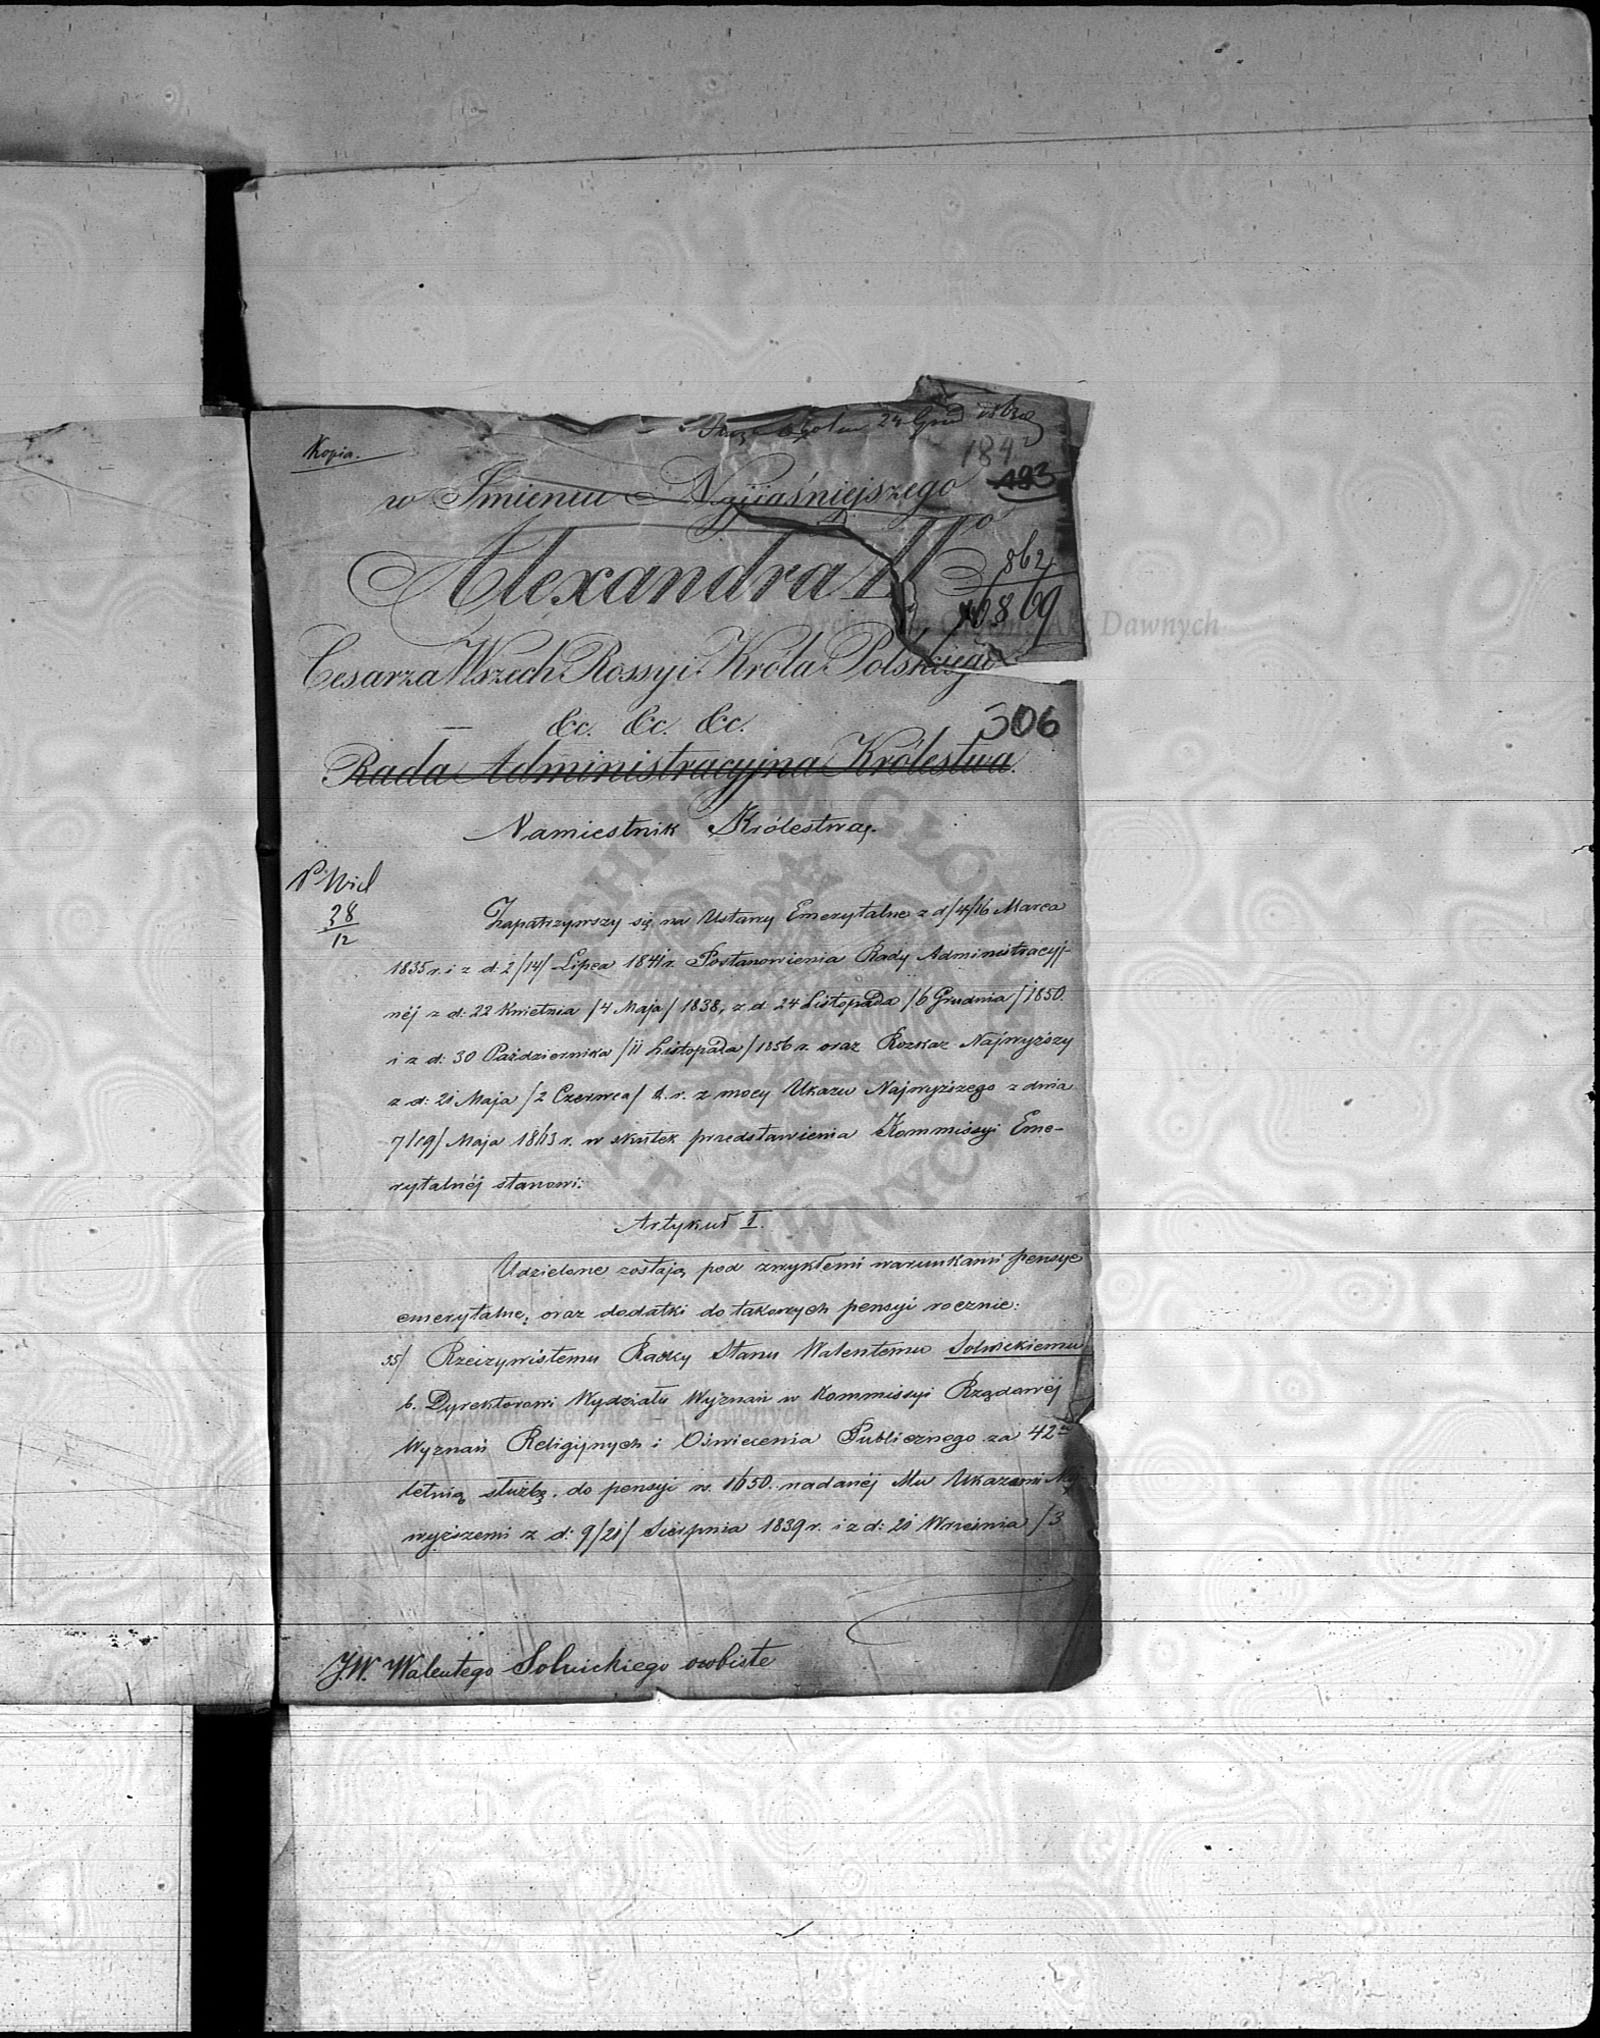 24 Grud
Kopia.
184
w Imieniu Najjaśniejszego
193
Alexandra II go
862
6869
Cesarza Wszech Rossyi Króla Polskiego
&c. &c. &c.
306
Rada Administracyjna Królestwa.
Namiestnik Królestwa,
N. Wiel
38/12
Zapatrzywszy się na Ustawy Emerytalne z d/4/16 Marca
1835 r. i z d: 2/14/ Lipca 1841 r. Postanowienia Rady Administracyj-
néj z d: 22 Kwietnia /4 Maja/ 1838, z d 24 Listopada /6 Grudnia/ 1850.
i z d: 30 Października /11 Listopada/ 1856 r. oraz Rozkaz Najwyższy
z d: 21 Maja /2 Czerwca/ t. r. z mocy Ukazu Najwyższego z dnia
7/19/ Maja 1863 r. w skutek przedstawienia Kommissyi Eme-
rytalnéj stanowi:
Artykuł I.
Udzielone zostają pod zwykłemi warunkami pensye
emerytalne, oraz dodatki do takowych pensyi rocznie:
35/ Rzeczywistemu Radcy Stanu Walentemu Solnickiemu
b. Dyrektorowi Wydziału Wyznań w Kommissyi Rządowéj
Wyznań Religijnych i Oświecenia Publicznego za 42
letnią służbę. do pensyi rs. 1650. nadanéj Mu Ukazami Naj-
wyższemi z d: 9/21/ Sierpnia 1839 r. i z d: 21 Września /3
JW. Walentego Solnickiego osobiste
Archiwum Główne Akt Dawnych
Archiwum Główne Akt Dawnych
ARCHIWUM GŁÓWNE AKT DAWNYCH